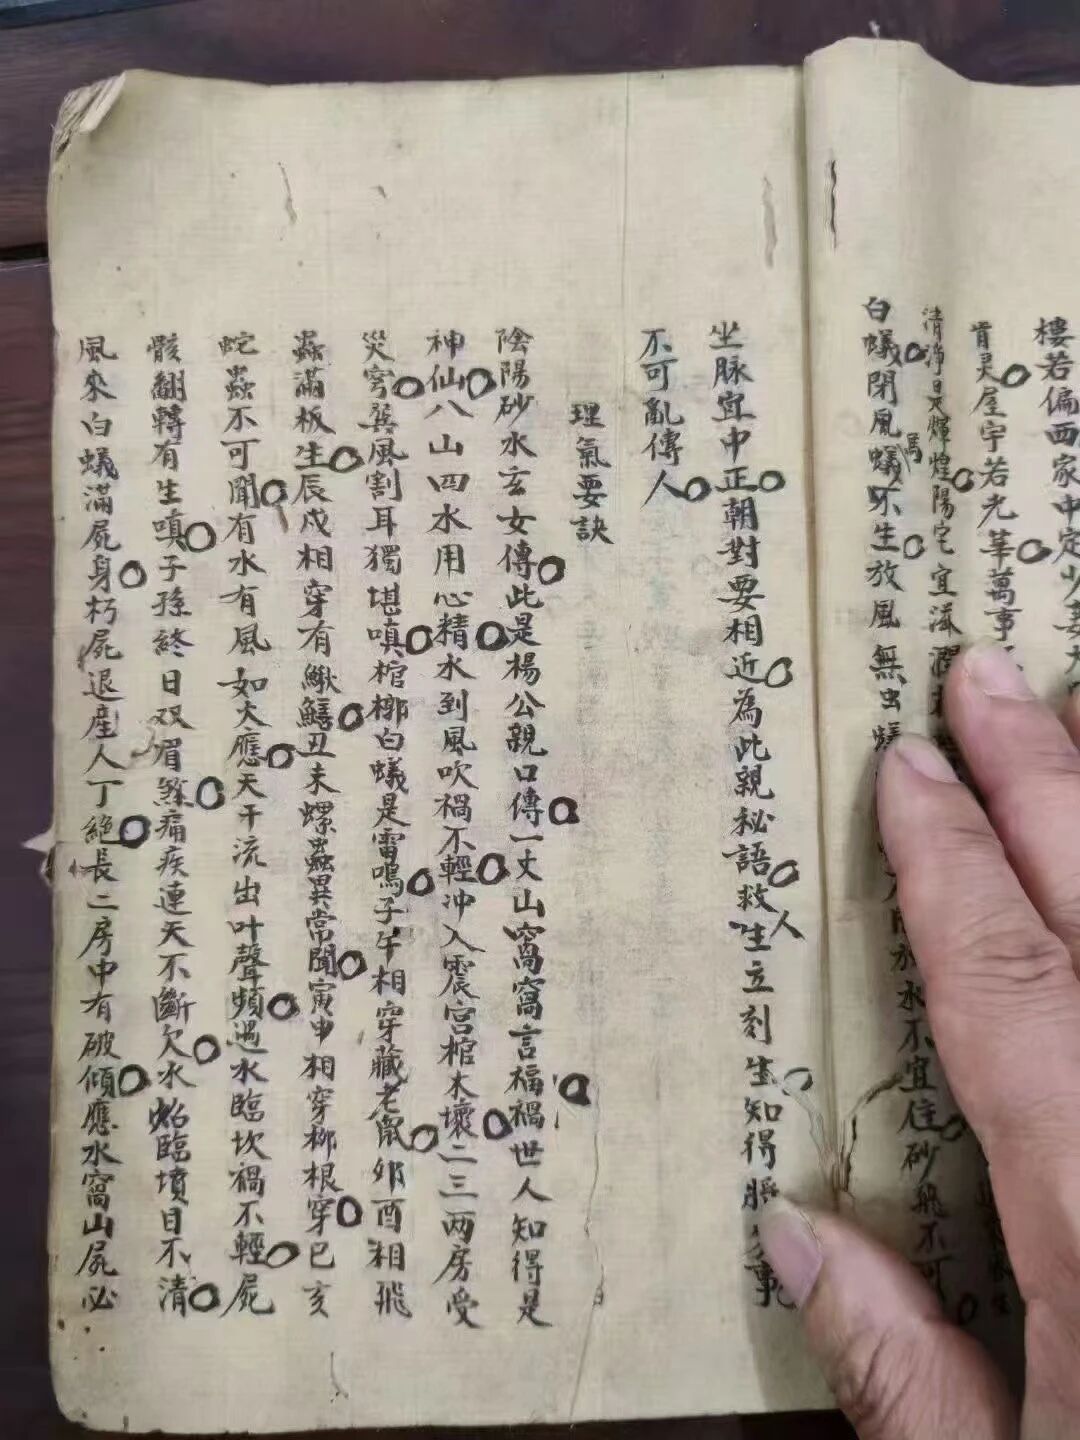 樓若偏西家中定少妻大
肯灵屋宇若光華萬事
清淨旦天輝煌陽宅宜滋潤
白蟻閉風蟻不生放風無虫蟻 水不宜住砂飛不可
馬
坐脉宜中正朝對要相近為此親秘語救人生立刻生知得脤 事
不可亂傳人
理氣要訣
陰陽砂水玄女傳此是楊公親口傳一丈山窩窩言福禍世人知得是
神仙八山四水用心精水到風吹禍不輕冲入震宮棺木壞二三兩房受
災穹巽風割耳獨堪嗔棺槨白蟻是雷鳴子午相穿藏老鼠夘酉相飛
蟲滿板生辰戍相穿有鰍鱔丑未螺蟲異常聞寅申相穿柳根穿巳亥
蛇蟲不可聞有水有風如大應天干流出叶聲頻過水臨坎禍不輕屍
骸翻轉有生嗔子孫終日双眉 痛疾連天不斷欠水 臨墳目不清
風來白蟻滿屍身朽屍退産人丁絕長二房中有破傾應水窩山屍必